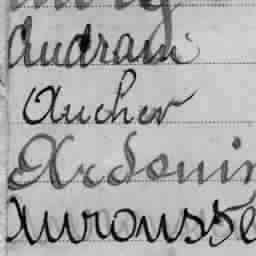 Audram
Aucher
Ardouin
Aurousse